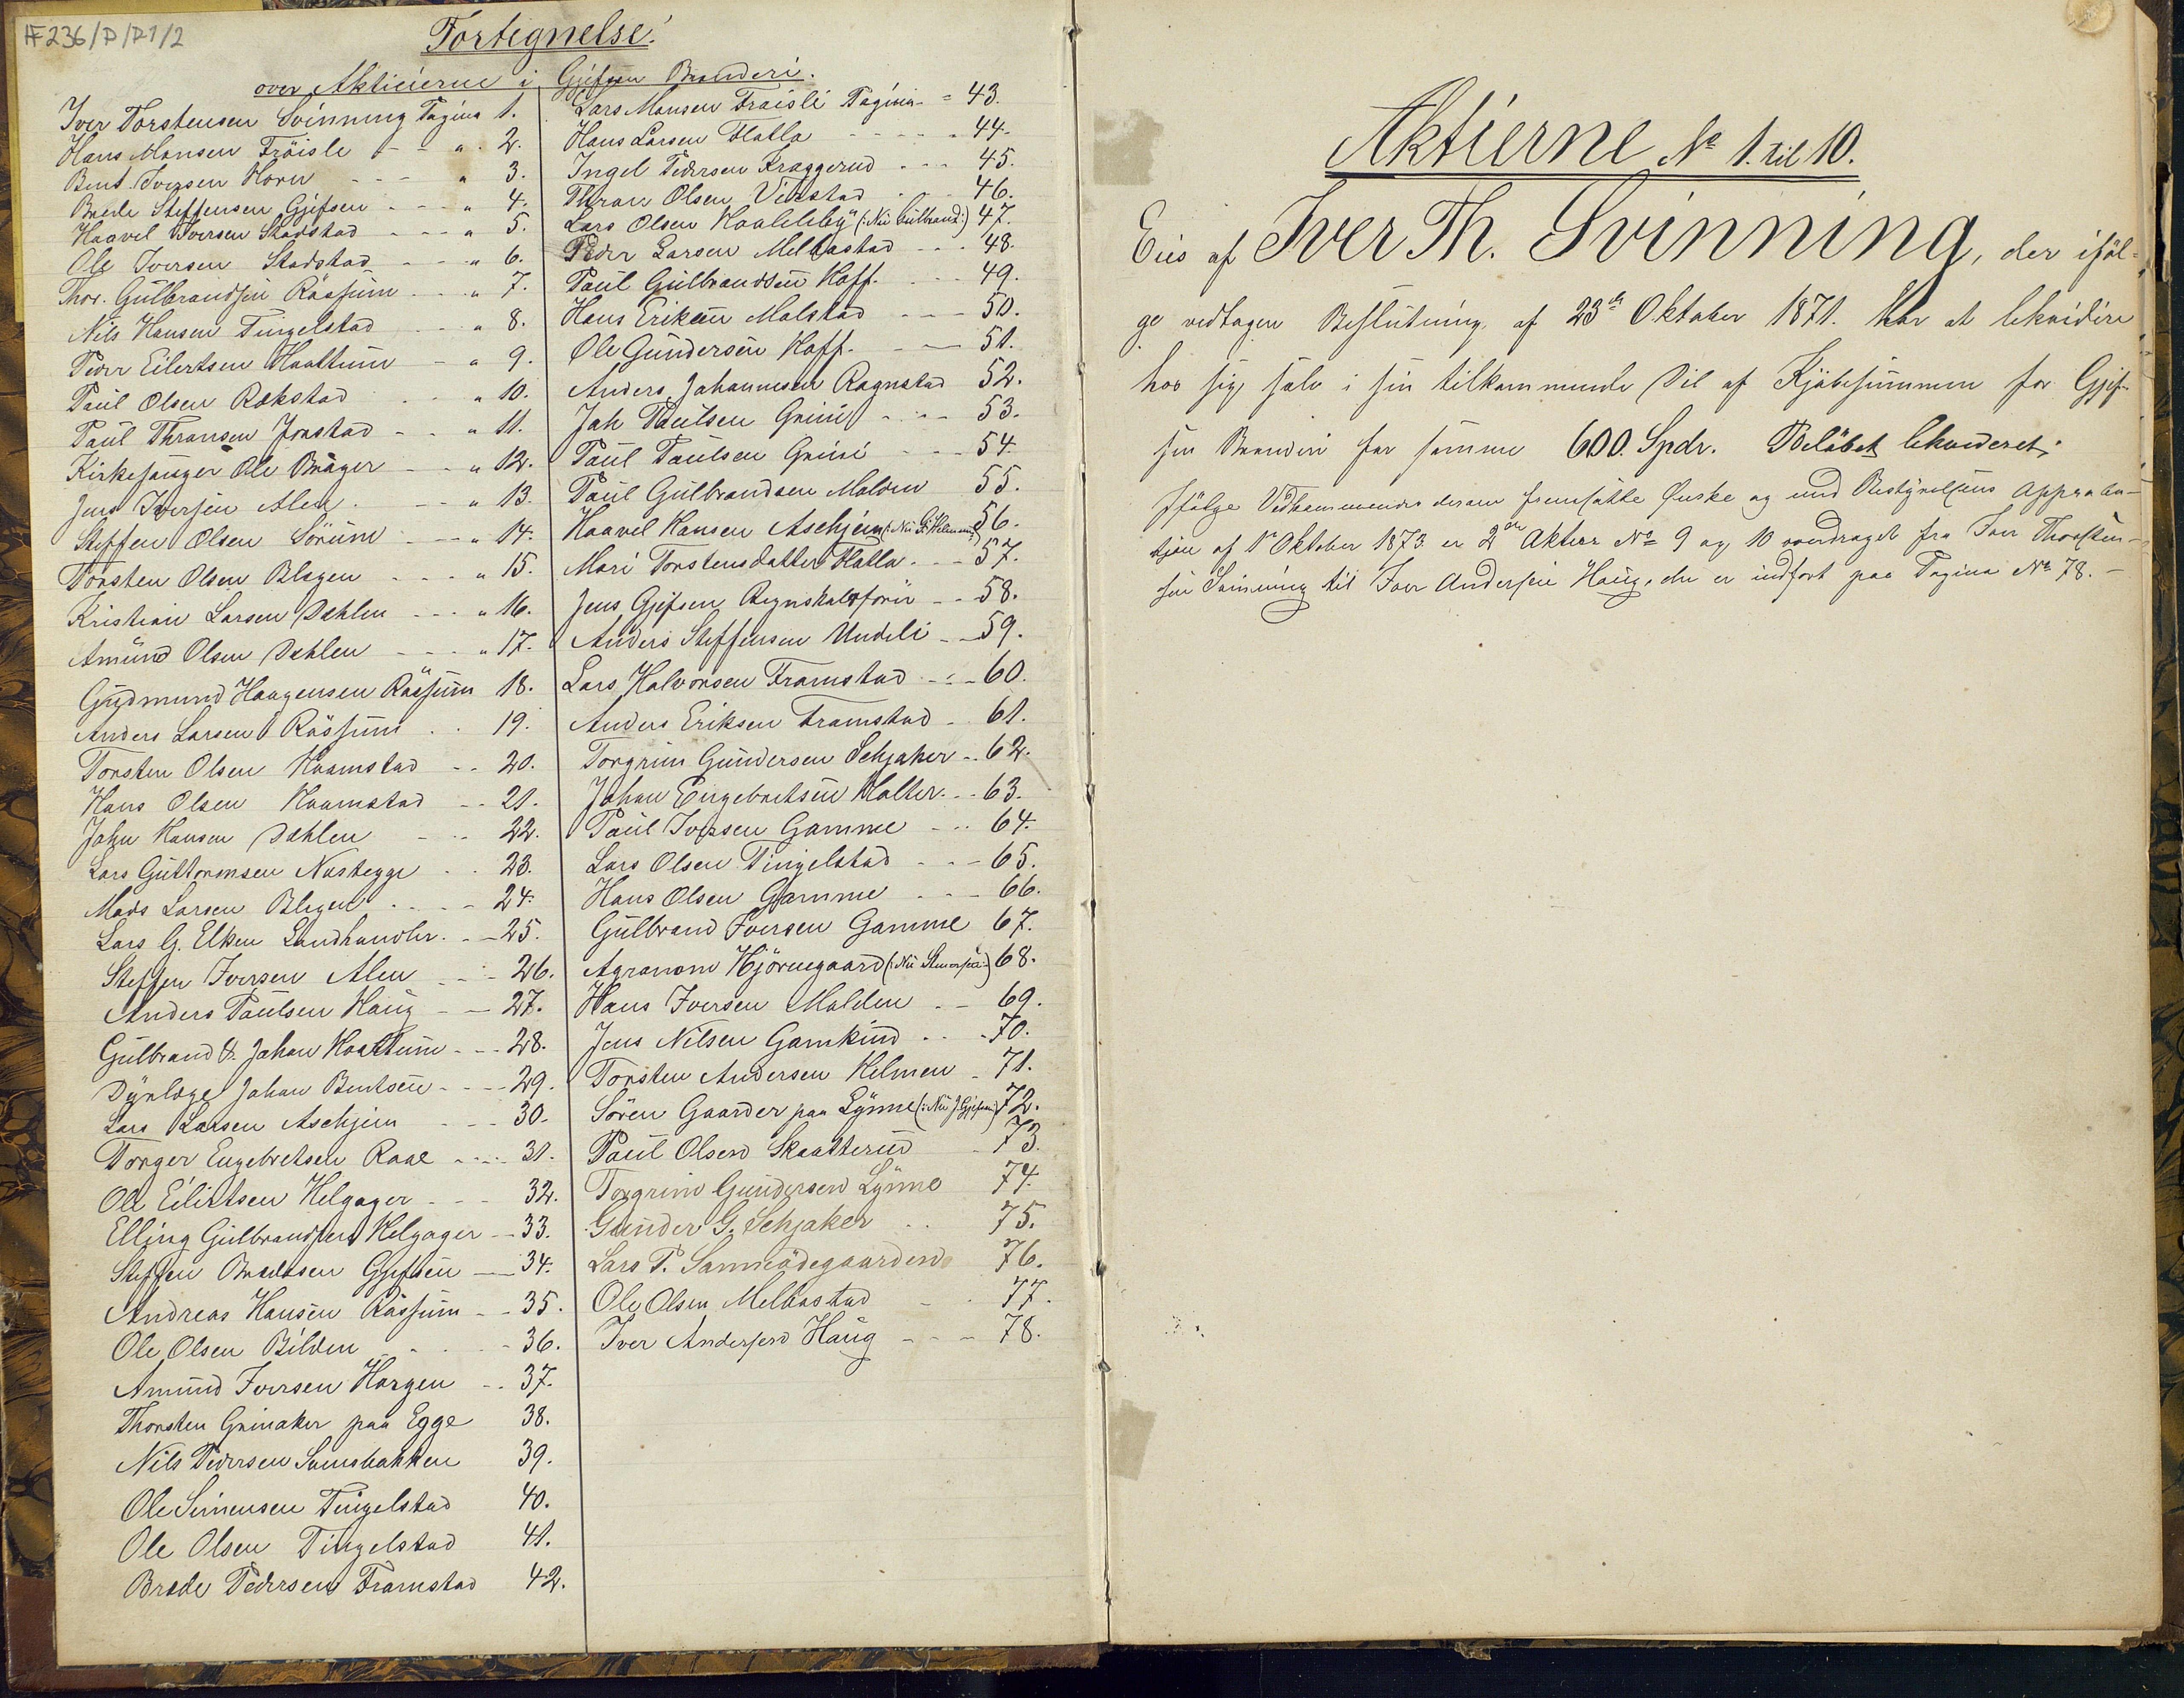 FF236/D/D1/2
Fortegnelse!
over Aktieierne i Gjefsen Brænderi.
Iver Torstensen Svinning Pagina 1.
Hans Monsen Fröisle - - " 2.
Bent Iversen Horn - - - " 3.
Brede Steffensen Gjefsen - - - " 4.
Haavel Iversen Stadstad - - - " 5.
Ole Iversen Stadstad - - " 6.
Thor. Gulbrandsen Rässum - - " 7.
Nils Hansen Tingelstad " 8.
Peder Eilertsen Haattum - " 9.
Paul Olsen Rækstad " 10.
Paul Thransen Jonstad - - " 11.
Kirkesanger Ole Brager - - " 12.
Jens Iversen Alen. - - " 13.
Steffen Olsen Sörum - - " 14.
Torsten Olsen Blegen - - - " 15.
Kristian Larsen Dæhlen - - - " 16.
Amund Olsen Dæhlen - - - " 17.
Gudmund Haagensen Rässum 18.
Anders Larsen Rässum . . 19.
Torsten Olsen Haamstad - - 20.
Hans Olsen Haamstad - - 21.
John Hansen Dæhlen - - - 22.
Lars Guttormsen Nustegge . . 23.
Mads Larsen Blegen . . - - 24.
Lars G. Elken Landhandler. - - 25.
Steffen Iversen Alen - - - 26.
Anders Paulsen Haug - - 27.
Gulbrand & Johan Haattum - - - 28.
Dyrlæge Johan Bentsen - - - - 29.
Lars Larsen Aschjem - - - 30.
Torger Engebretsen Raae - - - - 31.
Ole Eilertsen Helgager - - - 32.
Elling Gulbrandsen Helgager - 33.
Steffen Bredesen Gjefsen - 34.
Andreas Hansen Rässum - - 35.
Ole Olsen Bilden - - - - 36.
Amund Iversen Horgen - - 37.
Thorsten Grinaker paa Egge 38.
Nils Pedersen Sumsbakken 39.
Ole Simensen Tingelstad 40.
Ole Olsen Tingelstad 41.
Brede Pedersen Framstad 42.
Lars Monsen Fraisli Pagina - = 43.
Hans Larsen Flatla - - - - - 44.
Ingel Pedersen Kraggerud - - - 45.
Thran Olsen Vestad - - - 46.
Lars Olsen Haaleleby (: Nu Gulbrand:) 47.
Peder Larsen Melbostad - - - 48.
Paul Gulbrandsen Hoff. - - - 49.
Hans Eriksen Molstad - - - 50.
Ole Gundersen Hoff. - - - 51.
Anders Johannesen Rognstad 52.
Joh Paulsen Grini - - - 53.
Paul Paulsen Grini - - - 54.
Paul Gulbrandsen Molden 55.
Haavel Hansen Aschjem (: Nu G. Helmen:) 56.
Mari Torstensdatter Flatla. - - - 57.
Jens Gjefsen Regnskabsförer - - 58.
Anders Steffensen Undeli - - 59.
Lars Halvorsen Framstad - - - 60.
Anders Eriksen Framstad - 61.
Torgrim Gundersen Schjaker - - 62.
Johan Engebretsen Holter. - - 63.
Paul Iversen Gamme - - - 64.
Lars Olsen Tingelstad - - - 65.
Hans Olsen Gamme - - - 66.
Gulbrand Iversen Gamme 67.
Agronom Hjörnegaard (: Nu :) 68.
Hans Iversen Molden - - 69.
Jens Nilsen Gamkind - - - 70.
Torsten Andersen Helmen - 71.
Sören Gaarder paa Lynne (: Nu J Gjefsen:) 72.
Paul Olsen Skaatterud - 73.
Torgrim Gundersen Lynne 74.
Gunder G. Schjaker . . 75.
Lars P. Sanneödegaarden 76.
Ole Olsen Melbostad - . 77.
Iver Andersen Haug - - - 78.
Aktierne No 1. til 10.
Eies af Iver Th. Svinning, der ifäl-
ge vedtagen Beslutning af 23de Oktober 1871. har at lekvidere
hos sig sjelv i sin tilkommende Del af Kjøbesummen for Gjef-
sen Brænderi for summa 600. Spdr. Beläbet lekvideret.
Ifälge Vedkommendes derom fremsatte Ønske og med Bestyrelsens Approba-
tjon af 1 Oktober 1873 er 2de Aktier No 9 og 10 overdraget fra Iver Thorsten-
sen Svinning til Iver Andersen Haug, der er indfört paa Pagina No 78. -